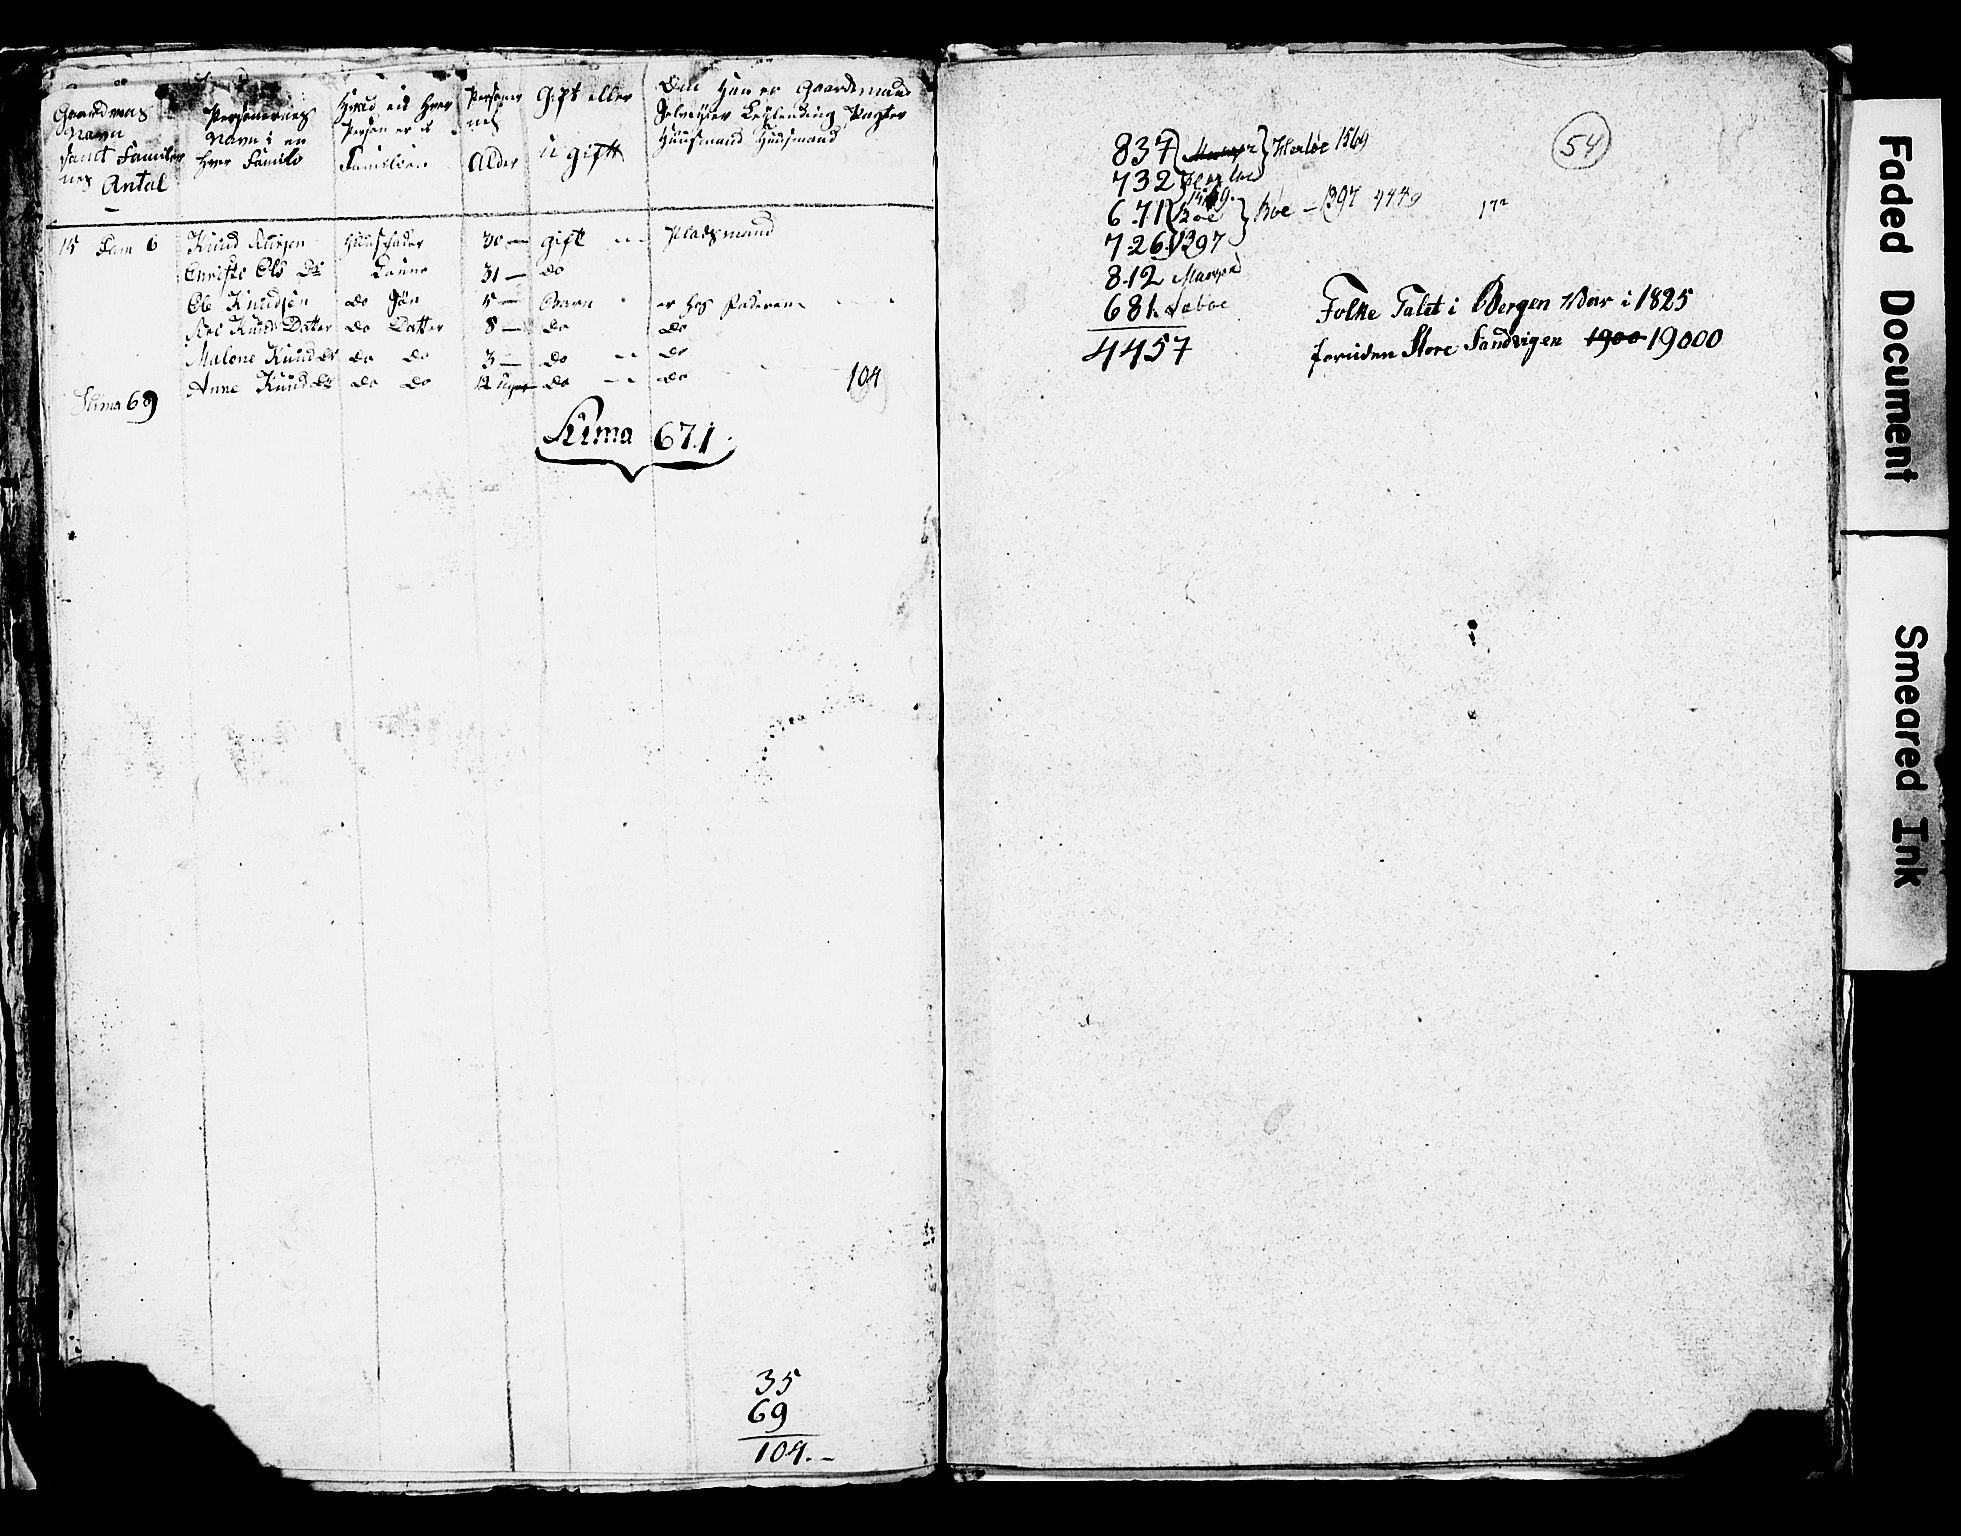 Gaardenes Navn samt Familernes Antal
Personernes Navn i en hver Familie
Hvad en hver Person er i Familien
Personernes Alder
Gift eller ugift
Gaardemand Selveyer Leylending Pagter Huusmand
15 Fam 6 Knud Huusfader 30 — gift Pladsmand
Ols Ds Konne 31 — do
Ole Knudsøn do Søn 5 — Barn er hos Faderen
Knuds Datter do Datter 8 — do do
Malene Knud Ds do do 3 — do do
Anne Knud Ds do do 12 Uger do do 104
Suma 69
Suma 671.
35
69
104. –
54
837 Herløe 1569
732 Herløe
671 Boe Boe – 1397 4449 172
726 1397
812 Manger
681. Sæboe
4457
Folke Talet i Bergen Var i 1825
foruden Store Sandvigen 1900 19000
Faded Document
Smeared Ink